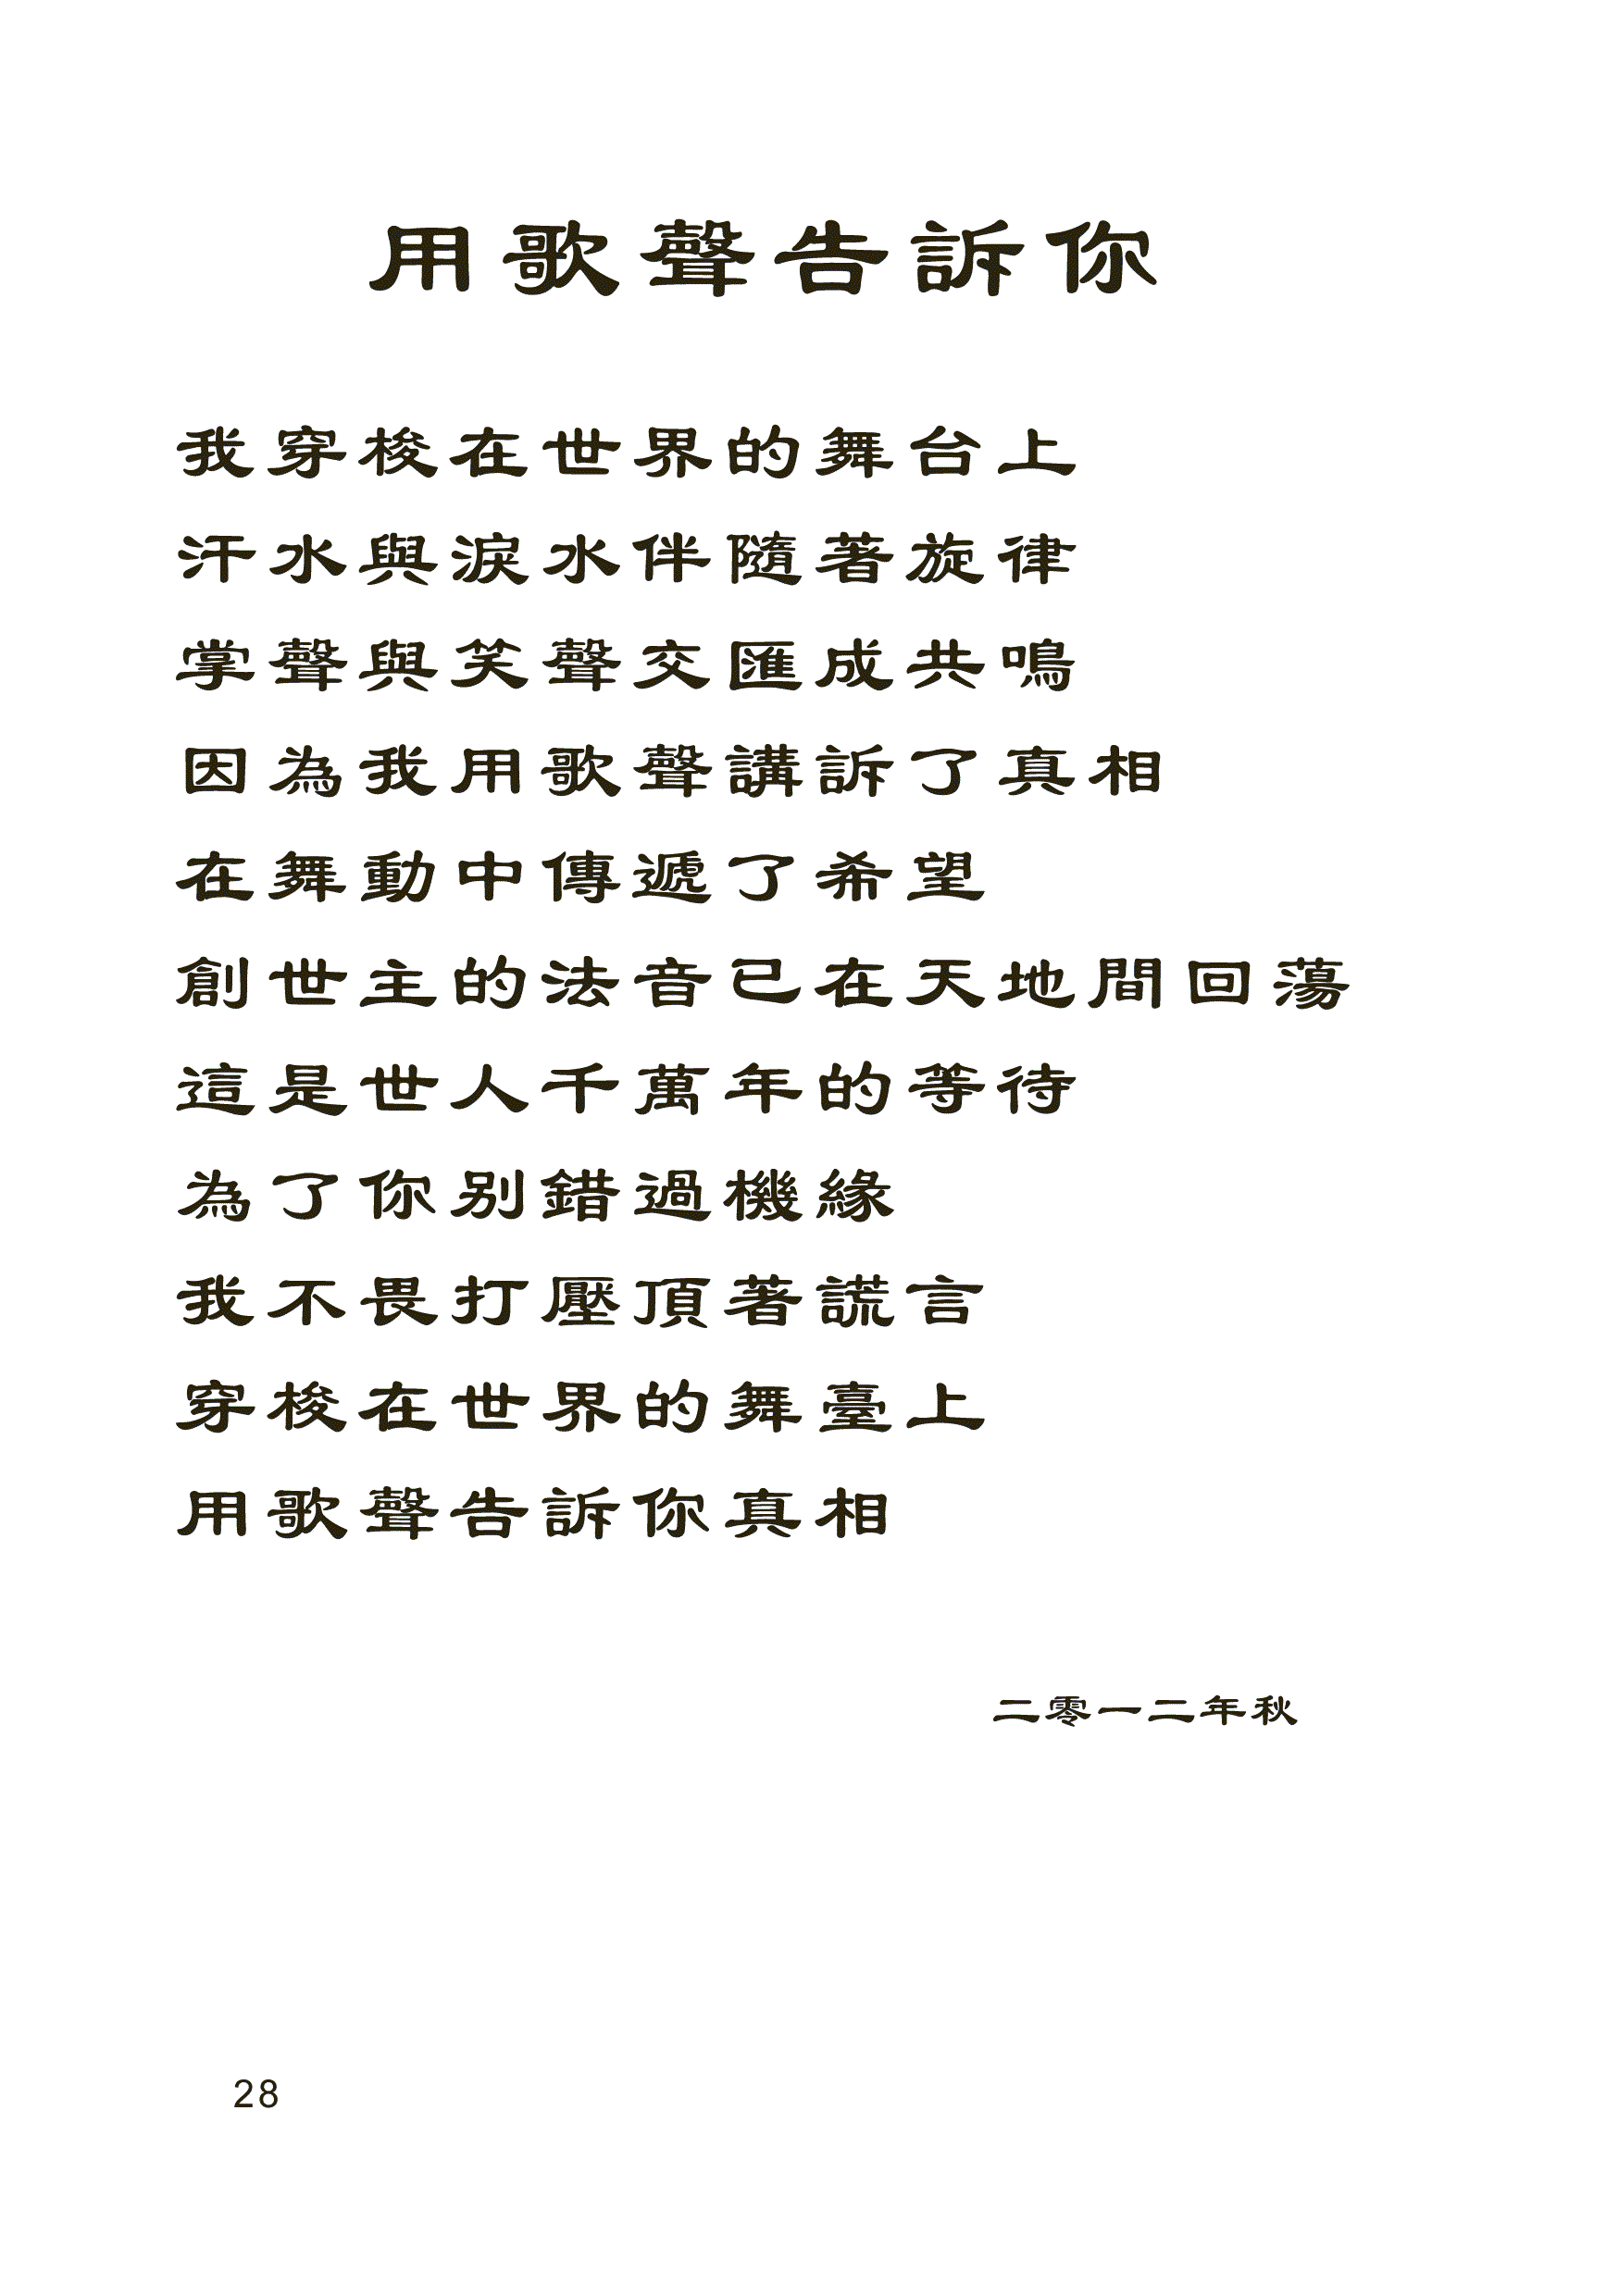 用歌聲告訴你
我穿梭在世界的舞台上
汗水與淚水伴隨著旋律
掌聲與笑聲交匯成共鳴
因為我用歌聲講訴了真相
在舞動中傳遞了希望
創世主的法音已在天地間回蕩
這是世人千萬年的等待
為了你别錯過機緣
我不畏打壓頂著謊言
穿梭在世界的舞臺上
用歌聲告訴你真相
二零一二年秋
28